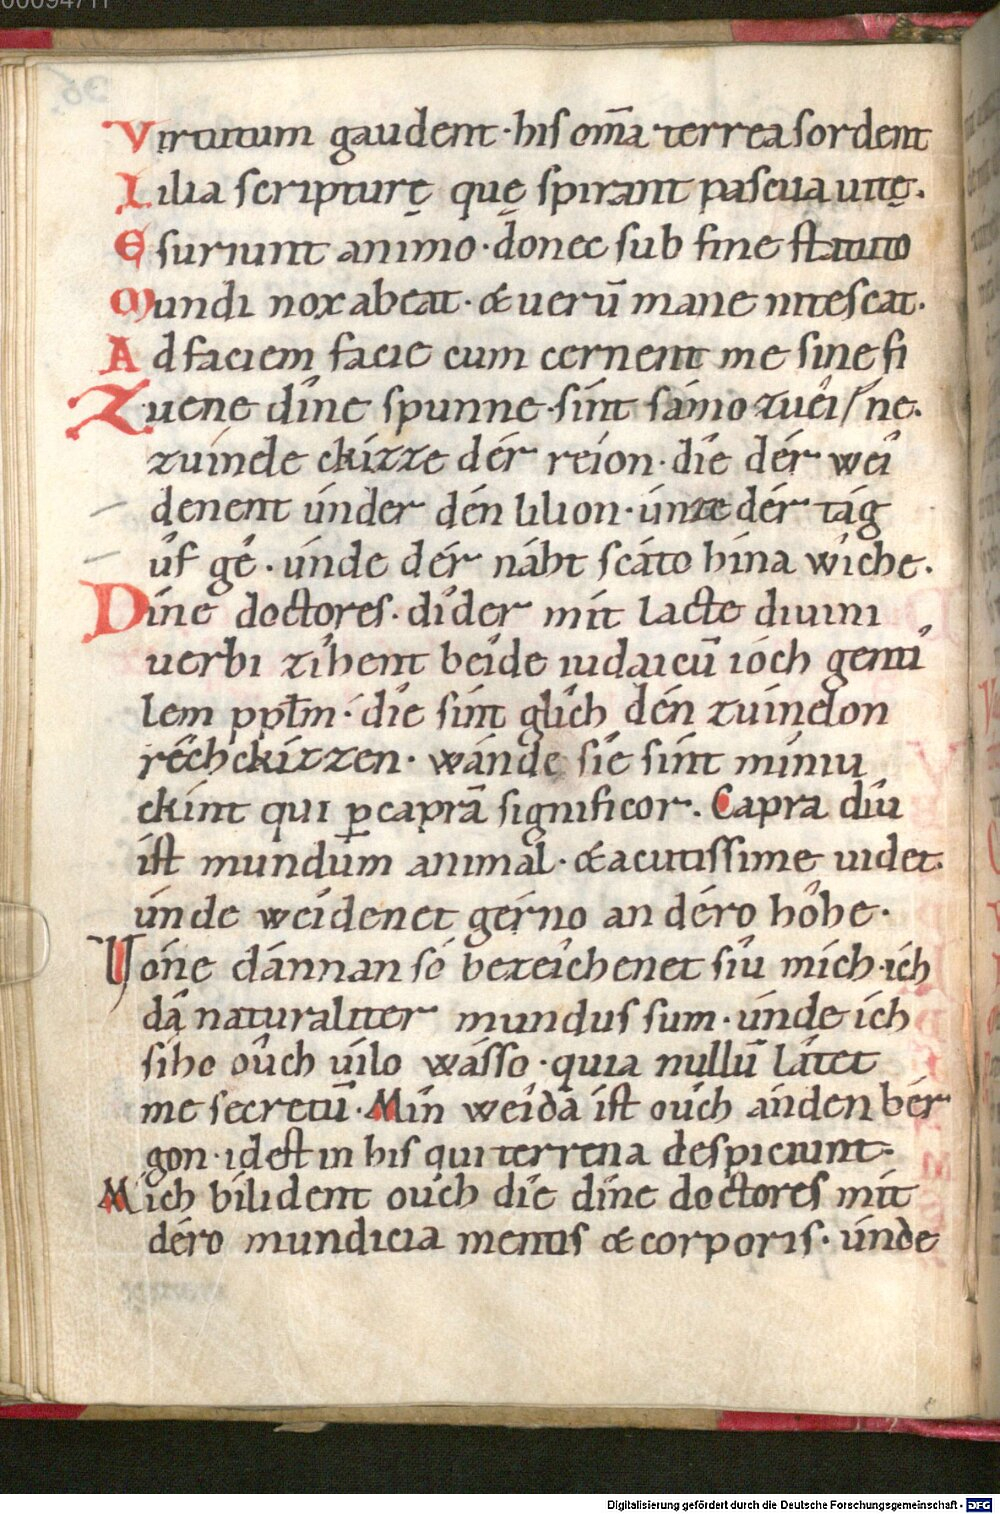 00094711
Virtutum gaudent · hiſ om̄a terrea ſordent
Lilia ſcripturę quę ſpirant paſcua uitę.
Eſuriunt animo · donec ſub fine ſtatuto
Mundi nox abeat · & uerū mane niteſcat.
Ad faciem facie cum cernent me ſine fi
Zuene dîne ſpunne · ſint ſámo zuêi / ne.
zuinele ckízze dér réion · dîe dér wéi
denent únder dén lilion · únze dér tág
ûf gê · únde dér náht ſcáto hína wîche.
Dîne doctoreſ · dî der mít lacte diuini
uerbi zîhent béide iudaicū ióch genti
lem pp̄lm · dîe ſínt glîch dén zuinelon
réchckízzen · wánde ſîe ſínt míniu
ckínt qui ꝑ caprā ſignificor. Capra díu
íſt mundum animal · & acutiſſime uidet.
únde wéidenet gérno an déro hôhe.
Vóne dánnan ſó bezêichenet ſíu mích · ích
dâ naturaliter munduſ ſum · únde ích
ſího ôuch uílo wáſſo · quia nullū látet
me ſecretū · Mín wéida íſt óuch ánden bér
gon · id eſt in hiſ qui terrena deſpiciunt.
Mích bílident óuch dîe dîne doctoreſ mít
déro mundicia mentiſ & corporiſ · únde
Digitalisierung gefördert durch die Deutsche Forschungsgemeinschaft - DFG